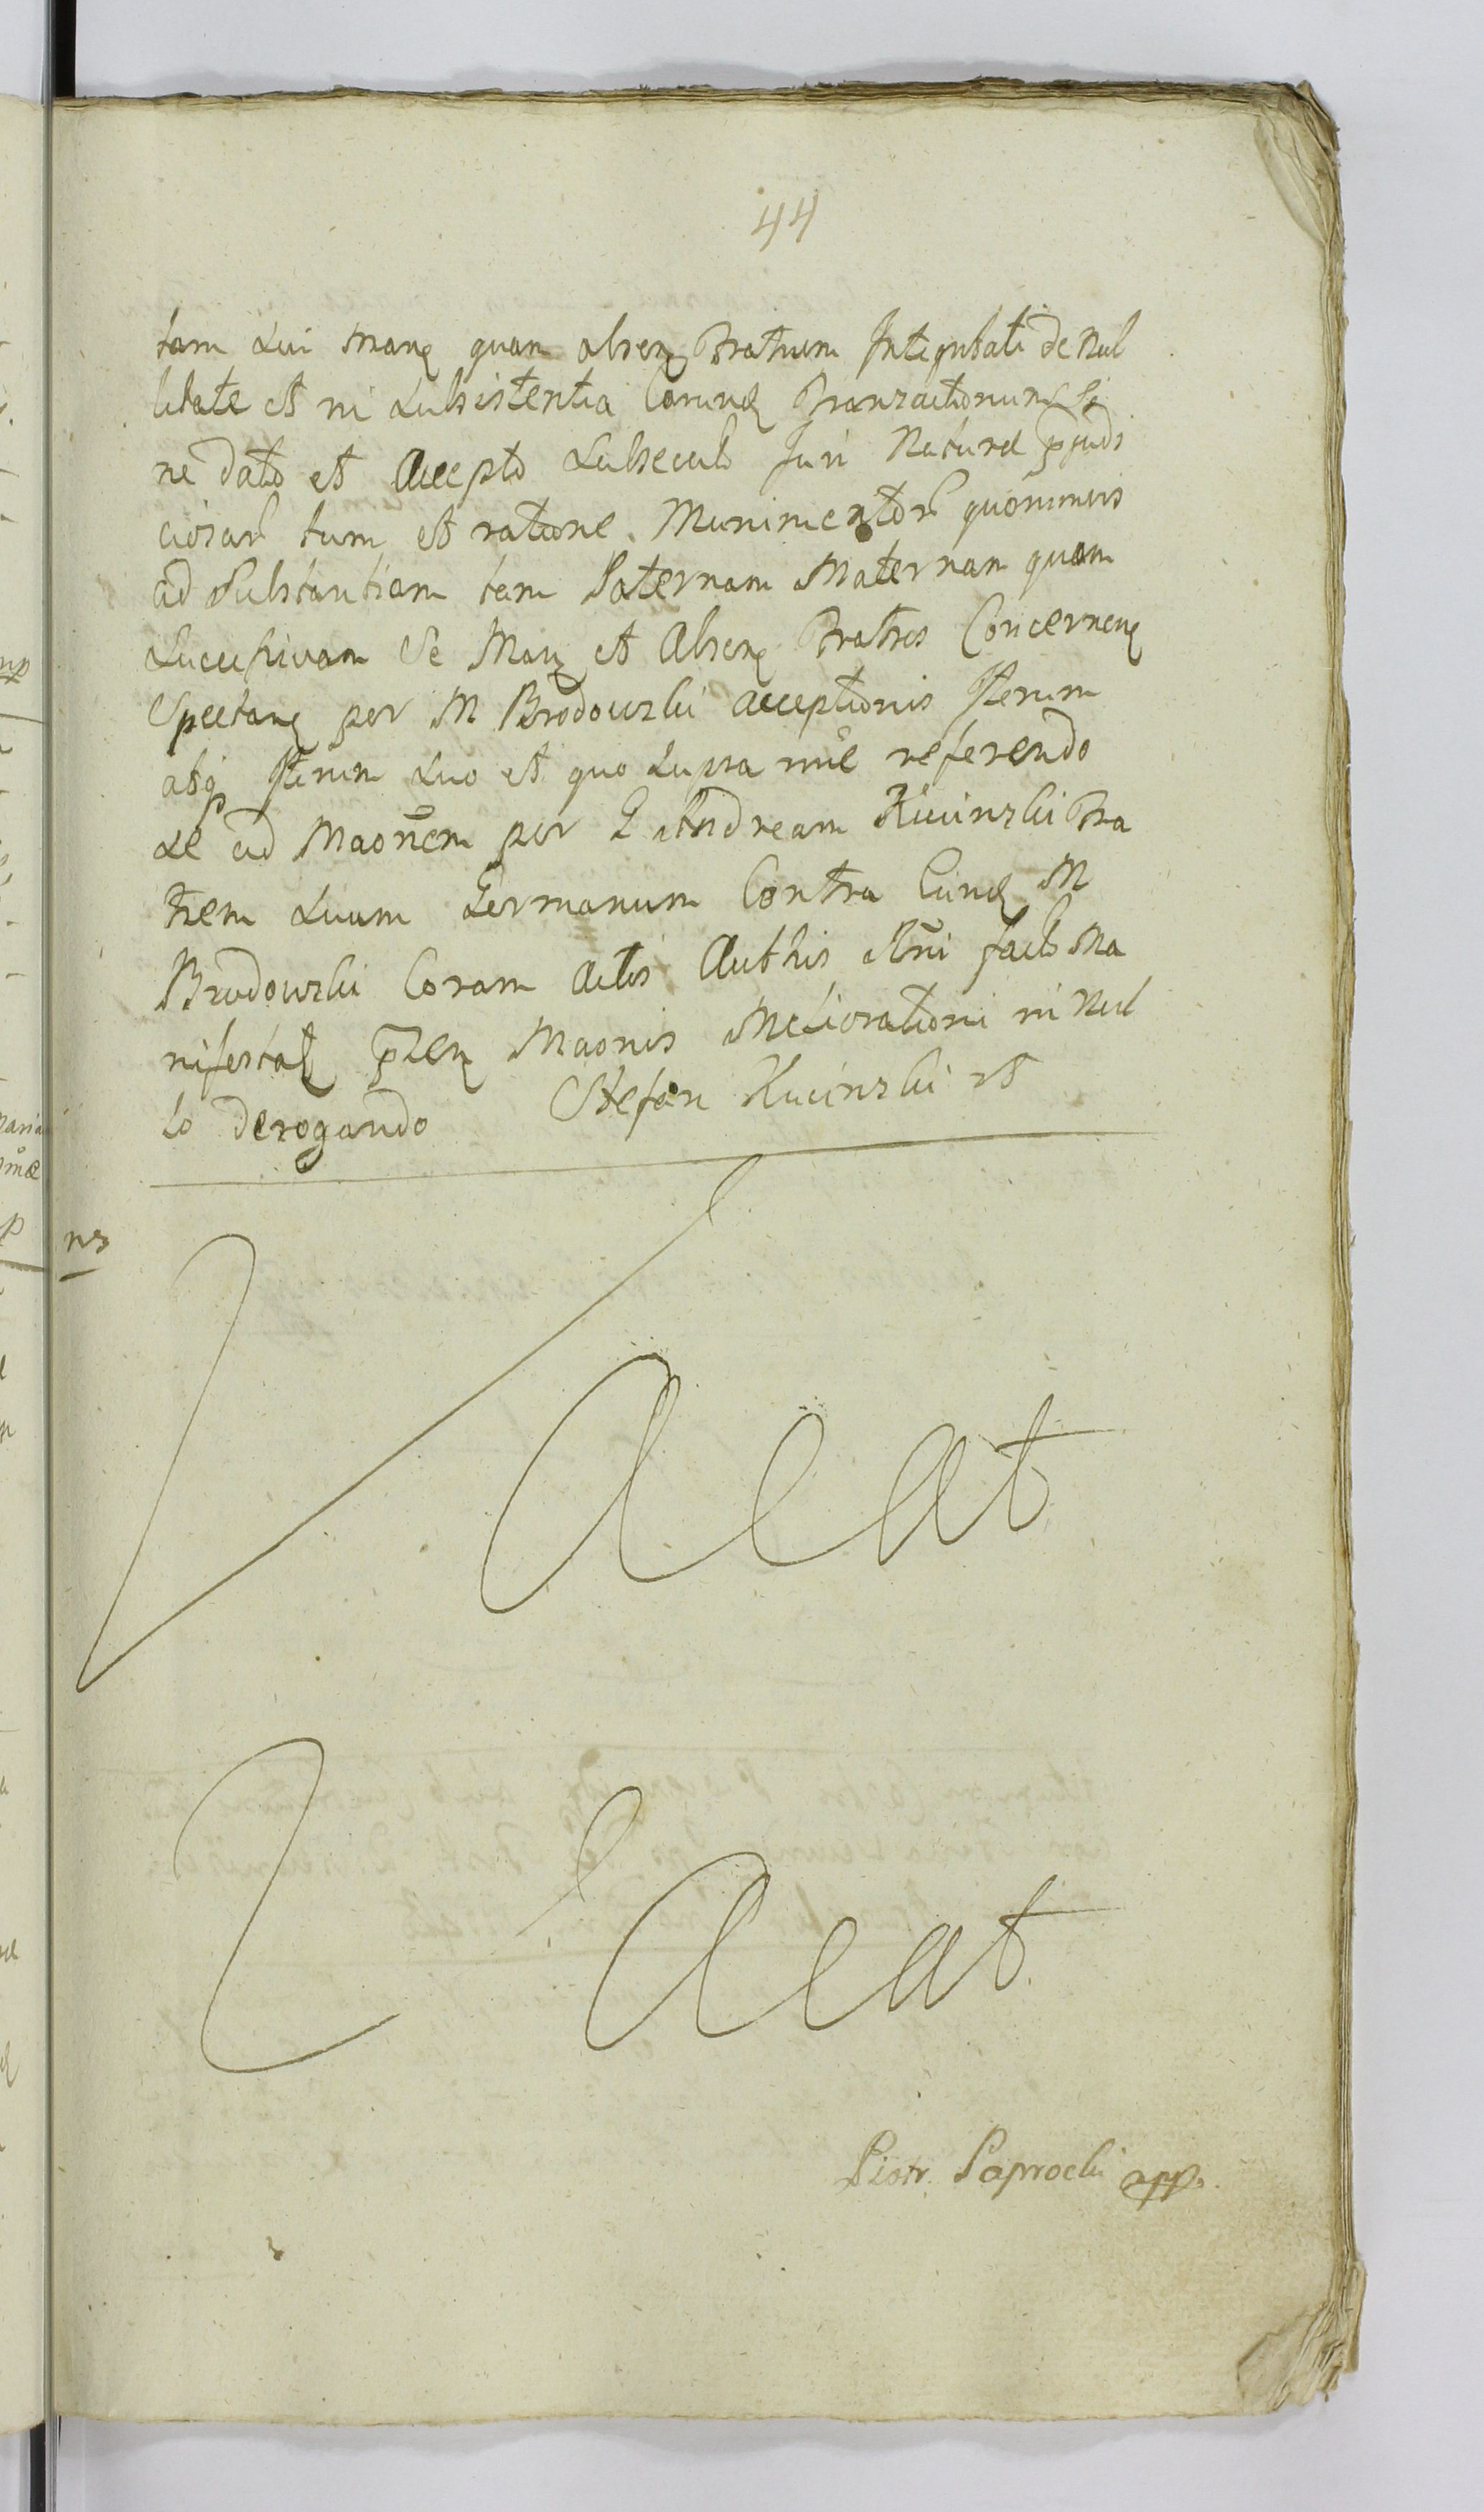 44
tam Sui Manẽ quam absenẽ Fratrum Integritati de Nul
litate et in Subsistentia Eorundẽ Tranzactionum Si
ne dato et Accepto Subsecuto Juri Naturæ p̄judi
ciosar̃ tum et ratione Munimentor̃ quorumvis
ad Substantiam tam Paternam Maternam quam
Successivam Se Manẽ et Absenẽ Fratres Concernenẽ
Spectanẽ per M Brodowzki acceptionis Iterum
atq̃ Iterum Suo et quo Supra nn̄e referendo
Se ad Maōnem per G Andream Kucinzki Fra
trem Suum Germanum Contra Eundẽ M
Brodowzki Coram Actis Authis facto Ma
nifestatẽ p̄zenẽ Maonis Melorationi in Nul
lo derogando Stefan Kucinzki
nz
Vacat
Vacat
Piotr Paprocki app.